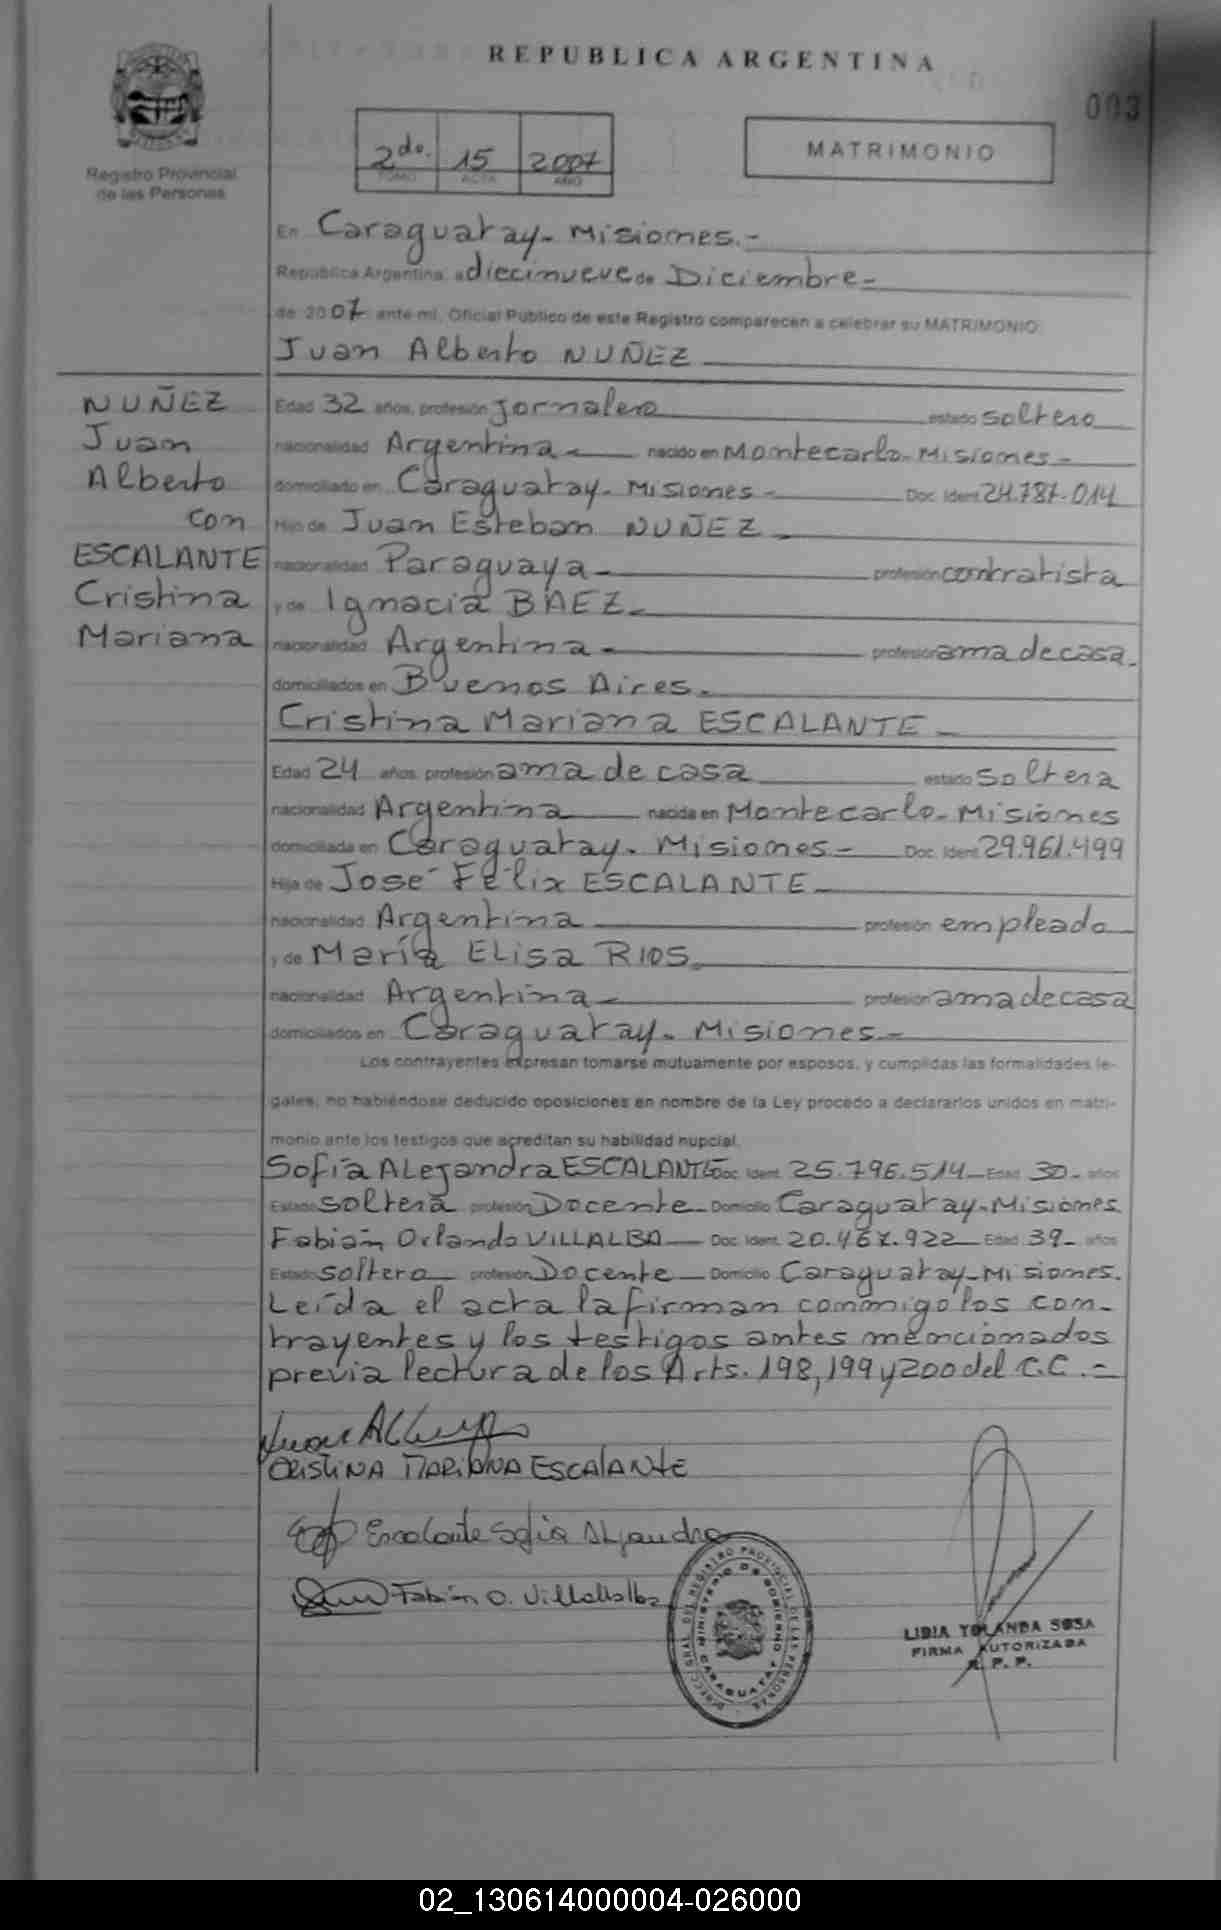 REPUBLICA ARGENTINA
003
Registro Provincial
de las Personas
2do. 15 2007
TOMO ACTA AÑO
MATRIMONIO
En Caraguatay - Misiones.-
República Argentina, a diecinueve de Diciembre -
de 2007 ante mí, Oficial Público de este Registro comparecen a celebrar su MATRIMONIO:
Juan Alberto NUÑEZ
NUÑEZ
Juan
Alberto
con
ESCALANTE
Cristina
Mariana
Edad 32 años, profesión jornalero estado soltero
nacionalidad Argentina - nacido en Montecarlo - Misiones -
domiciliado en Caraguatay - Misiones - Doc. Ident. 24.787.014
Hijo de Juan Esteban NUÑEZ -
nacionalidad Paraguaya - profesión contratista
y de Ignacia BAEZ -
nacionalidad Argentina - profesión ama de casa.
domiciliados en Buenos Aires -
Cristina Mariana ESCALANTE -
Edad 24 años, profesión ama de casa estado soltera
nacionalidad Argentina nacida en Montecarlo - Misiones
domiciliada en Caraguatay - Misiones - Doc. Ident. 29.961.499
Hija de José Félix ESCALANTE -
nacionalidad Argentina profesión empleado
y de María ELisa RIOS -
nacionalidad Argentina - profesión ama de casa
domiciliados en Caraguatay - Misiones -
Los contrayentes expresan tomarse mutuamente por esposos, y cumplidas las formalidades le-
gales, no habiéndose deducido oposiciones en nombre de la Ley procedo a declararlos unidos en matri-
monio ante los testigos que acreditan su habilidad nupcial.
Sofía ALejandra ESCALANTE Doc. Ident. 25.796.514 - Edad 30 - años
Estado soltera profesión Docente - Domicilio Caraguatay - Misiones
Fabián Orlando VILLALBA - Doc. Ident. 20.467.922 - Edad 39 - años
Estado soltero - profesión Docente - Domicilio Caraguatay - Misiones.
Leída el acta la firman conmigo los con-
trayentes y los testigos antes mencionados
previa lectura de los Arts. 198, 199 y 200 del C.C. =
CRISTINA MARIANA ESCALANTE
Escalante Sofia Alejandra
Fabián O. Villalba
DIRECC. GRAL. DEL REGISTRO PROVINCIAL DE LAS PERSONAS
MINISTERIO DE GOBIERNO
CARAGUATAY
LIDIA YOLANDA SOSA
FIRMA AUTORIZADA
R. P. P.
02_130614000004-026000